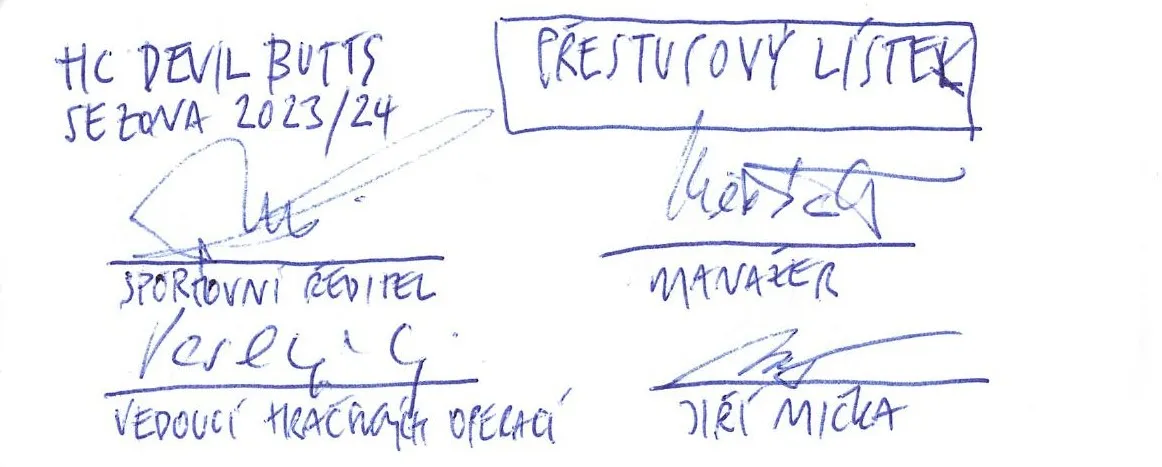 HC DEVIL BUTTS
SEZONA 2023/24
PŘESTUPOVÝ LÍSTEK
SPORTOVNÍ ŘEDITEL
MANAŽER
VEDOUCÍ HRÁČSKÝCH OPERACÍ
JIŘÍ MIČKA